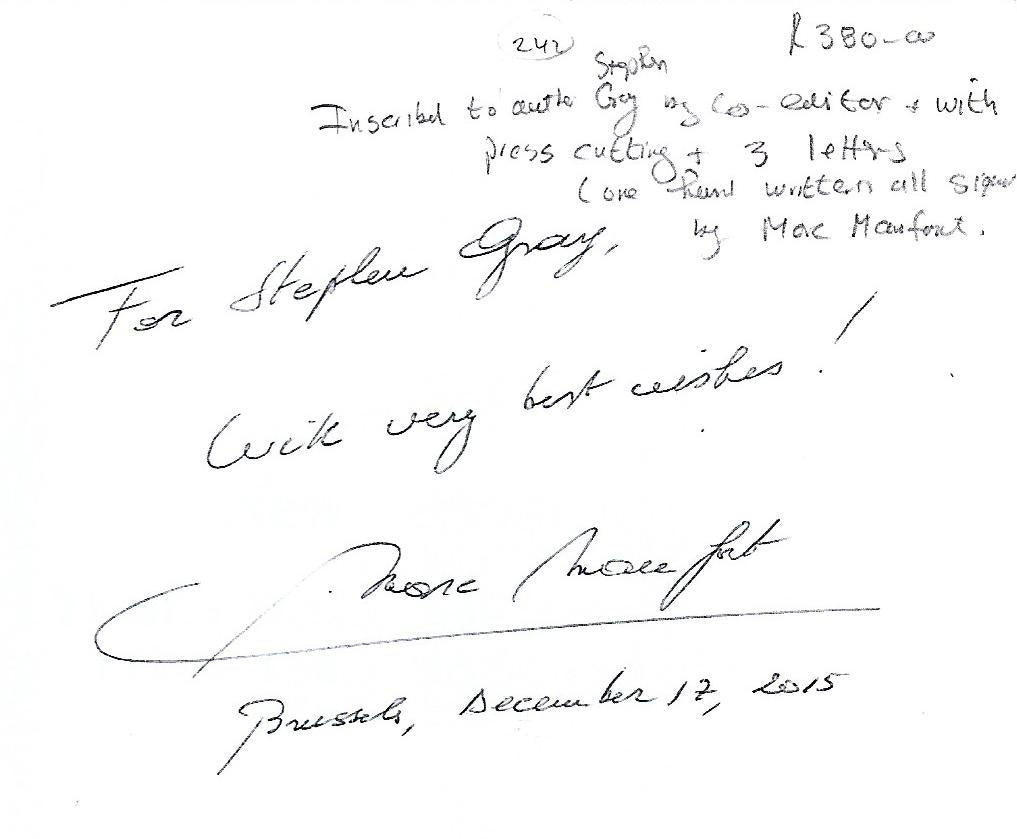 242
R380-00
Stephen
Inscribed to author Gray by co-editor + with
press cutting + 3 letters
(one hand written all signed
by Marc Maufort.
For Stephen Gray,
With very best wishes!
Marc Maufort
Brussels, December 17, 2015